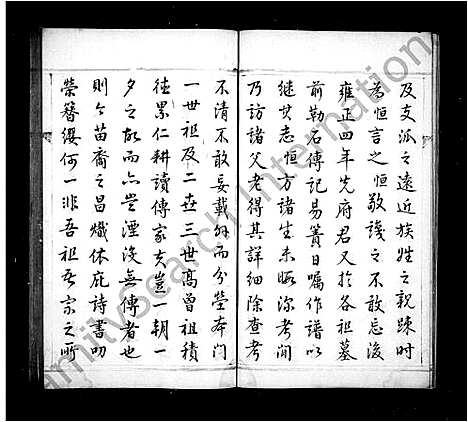 及支派之遠近族姓之親疎時
為恒言之恒敬識之不敢忘後
雍正四年先府君又於各祖墓
前勒石傳記易簀日囑作譜以
継其志恒方諸生未暇深考間
乃訪諸父老得其詳細除查考
不清不敢妄載外而分塋本门
一世祖及二世三世高曾祖積
徳累仁耕讀傳家夫豈一朝一
夕之故而六豈湮没無傳者也
則今苗裔之昌熾体庇詩書叨
榮簪纓何一非吾祖吾宗之所
FamilySearch International